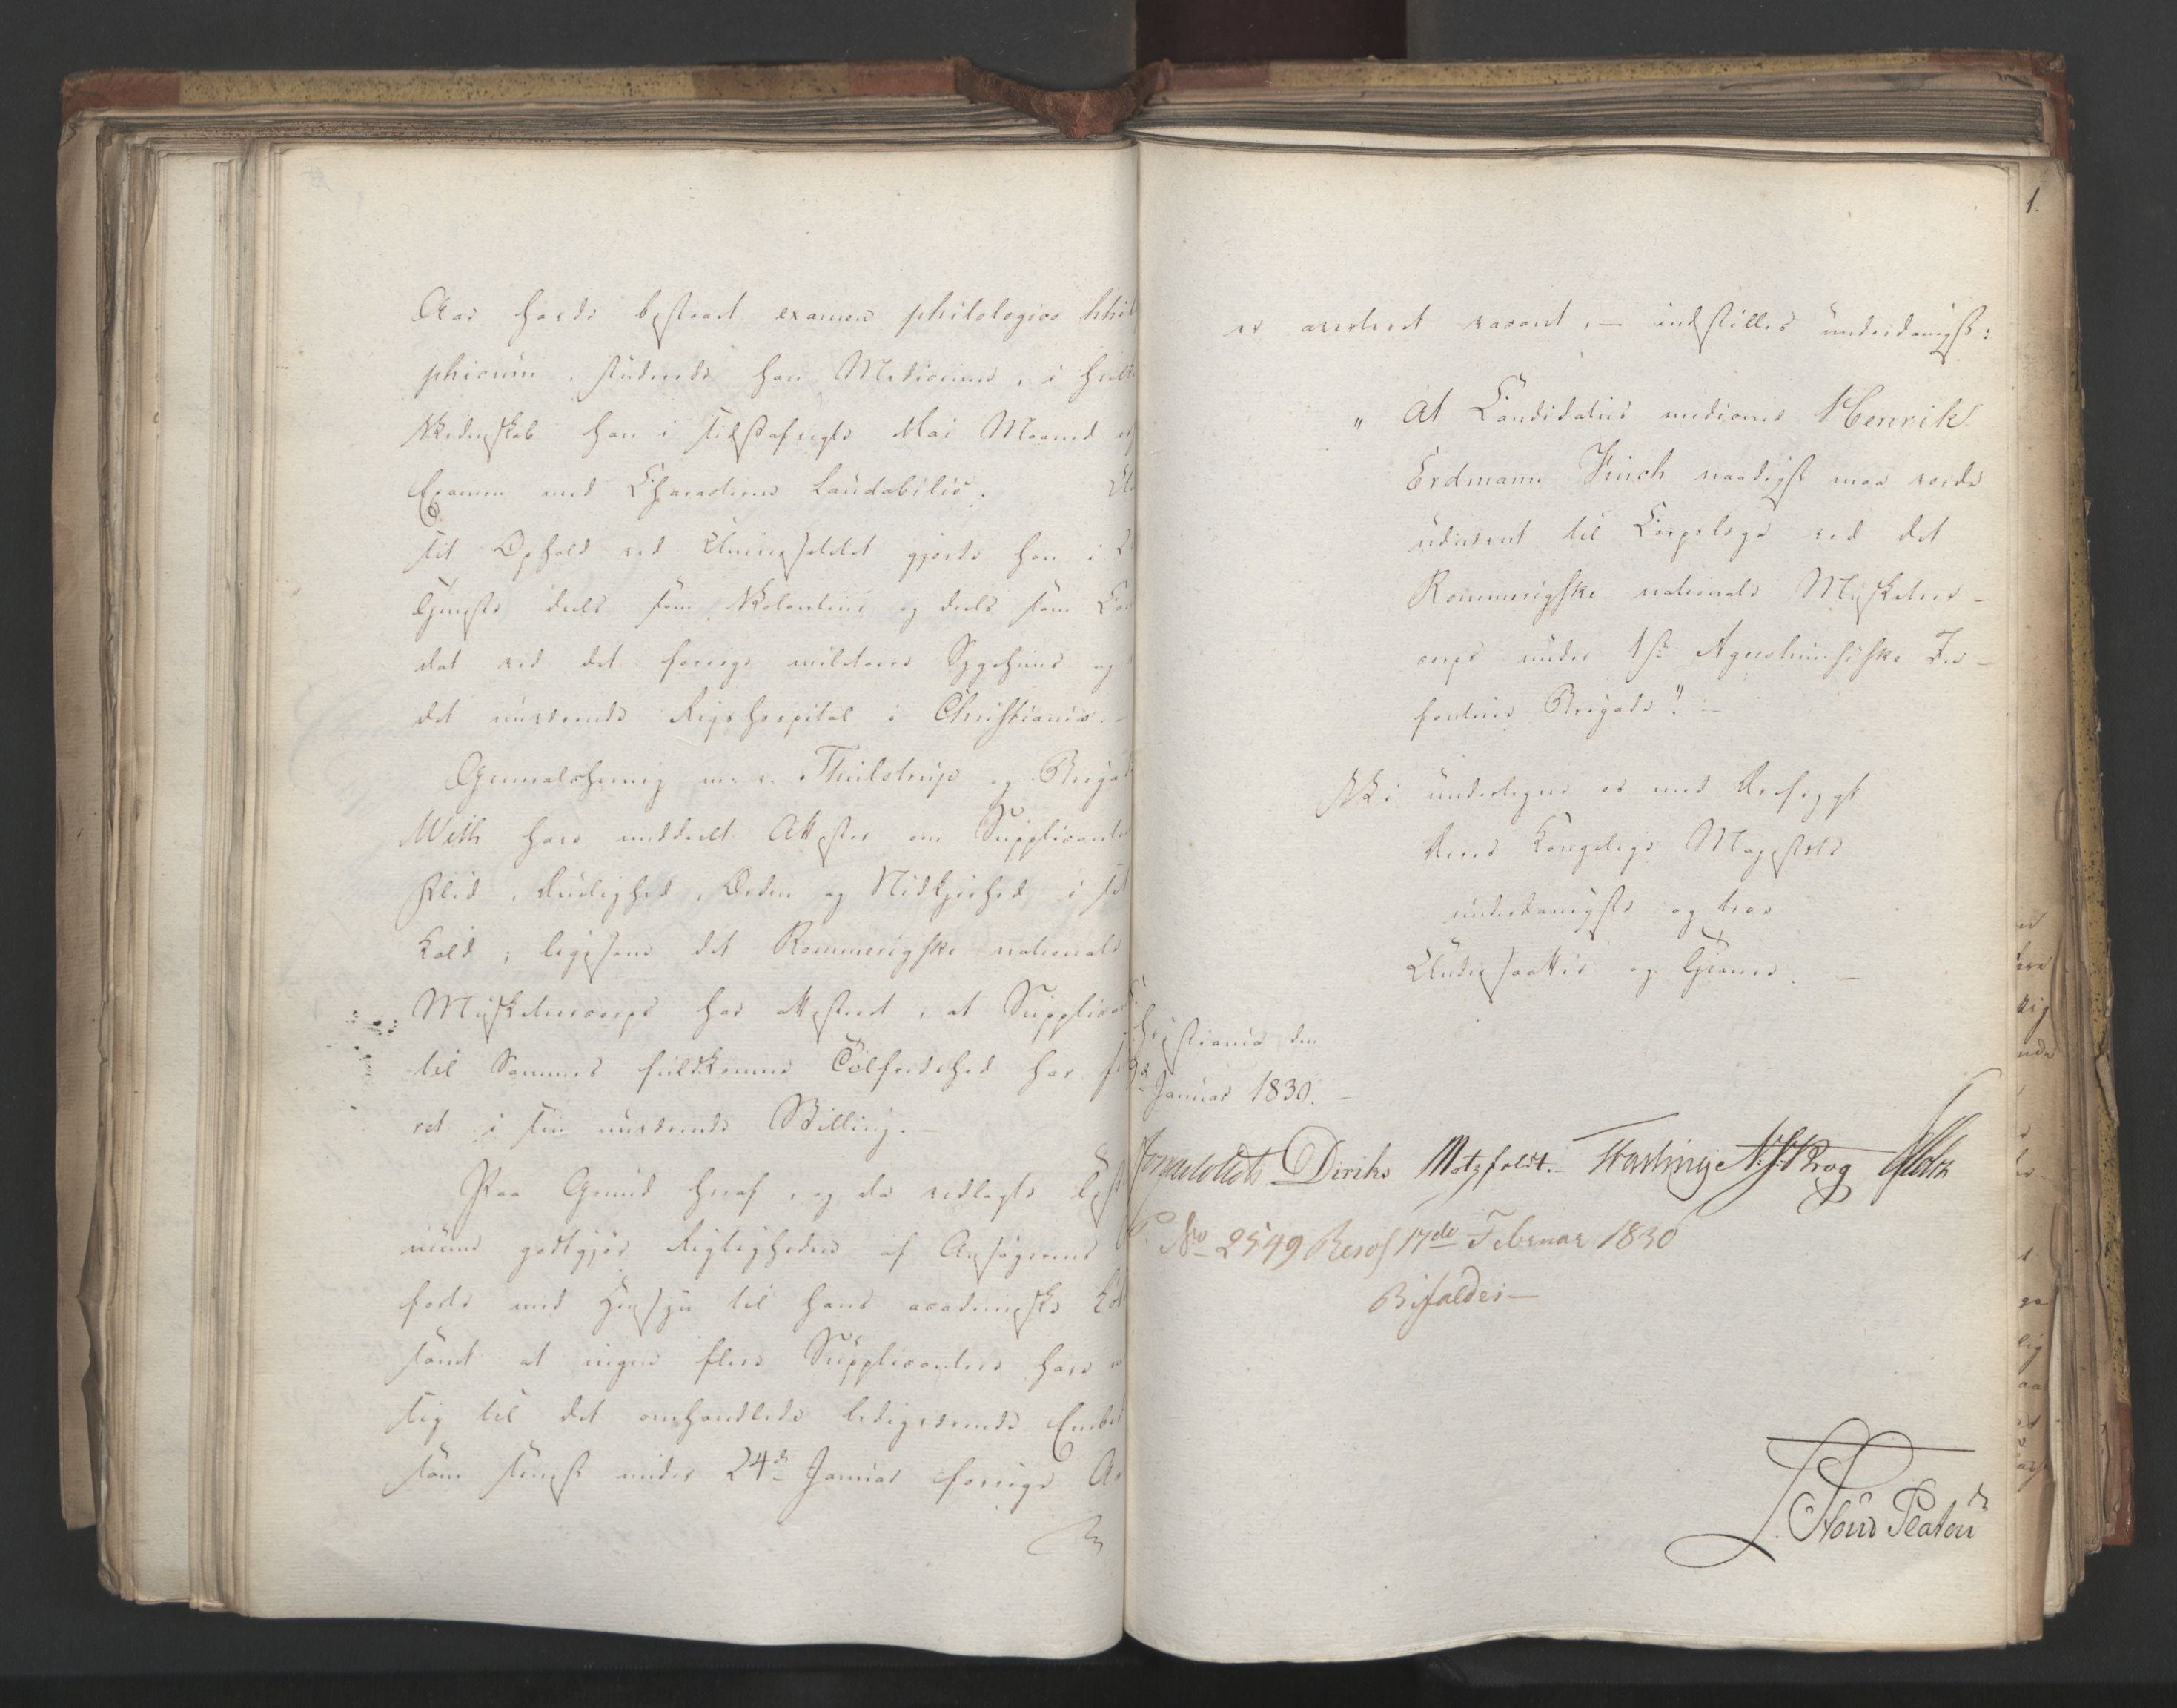 Aar havde bestaaet examen philologico philo
phicum, studerede han Medicinen, i hvilken
Videnskab han i sidstafvigte Mai Maaned
Examen med Characteren Laudabilis.
sit Ophold ved Universitetet gjorde han
Tjeneste deels som Volontair og deels som Can
dat ved det forrige militaire Sygehuus og
det nuværende Rigshospital i Christiania. -
Generalchirurg m. v. Thulstrup og Brigade
With have meddeelt Attester om Supplicantens
Flid, Duelighed, Orden og Nidkjerhed i sit
Kald; ligesom det Rommerigske nationale
Musketeercorps har attesteret, at Supplicanten
til Sammes fuldkomne Tilfredshed har
ret i sin nuværende Stilling. -
Paa Grund heraf, og da vedlagte
godtgjør Rigtigheden af Ansøgerens
med Hensyn til hans academiske
samt at ingen flere Supplicantere have
sig til det omhandlede ledigværende Embede
som senest under 24de Januar forrige Aar
1.
er averteret vacant, — indstilles underdanigst:
" At Candidatus medicinæ Henrik
Erdmann Finch naadigst maa vorde
udnævnt til Corpslæge ved det
Rommerigske nationale Musketeer-
corps under 1ste Agershuusiske In-
fanterie Brigade". -
Vi undertegne os med Ærefrygt
Deres Kongelige Majestæts
underdanigste og troe
Undersaatter og Tjenere. -
Christiania den
Januar 1830. -
Diriks Motzfeldt. Fasting N: J: Krog
No 2549 Resol 17de Februar 1830
Bifaldes —
Platen